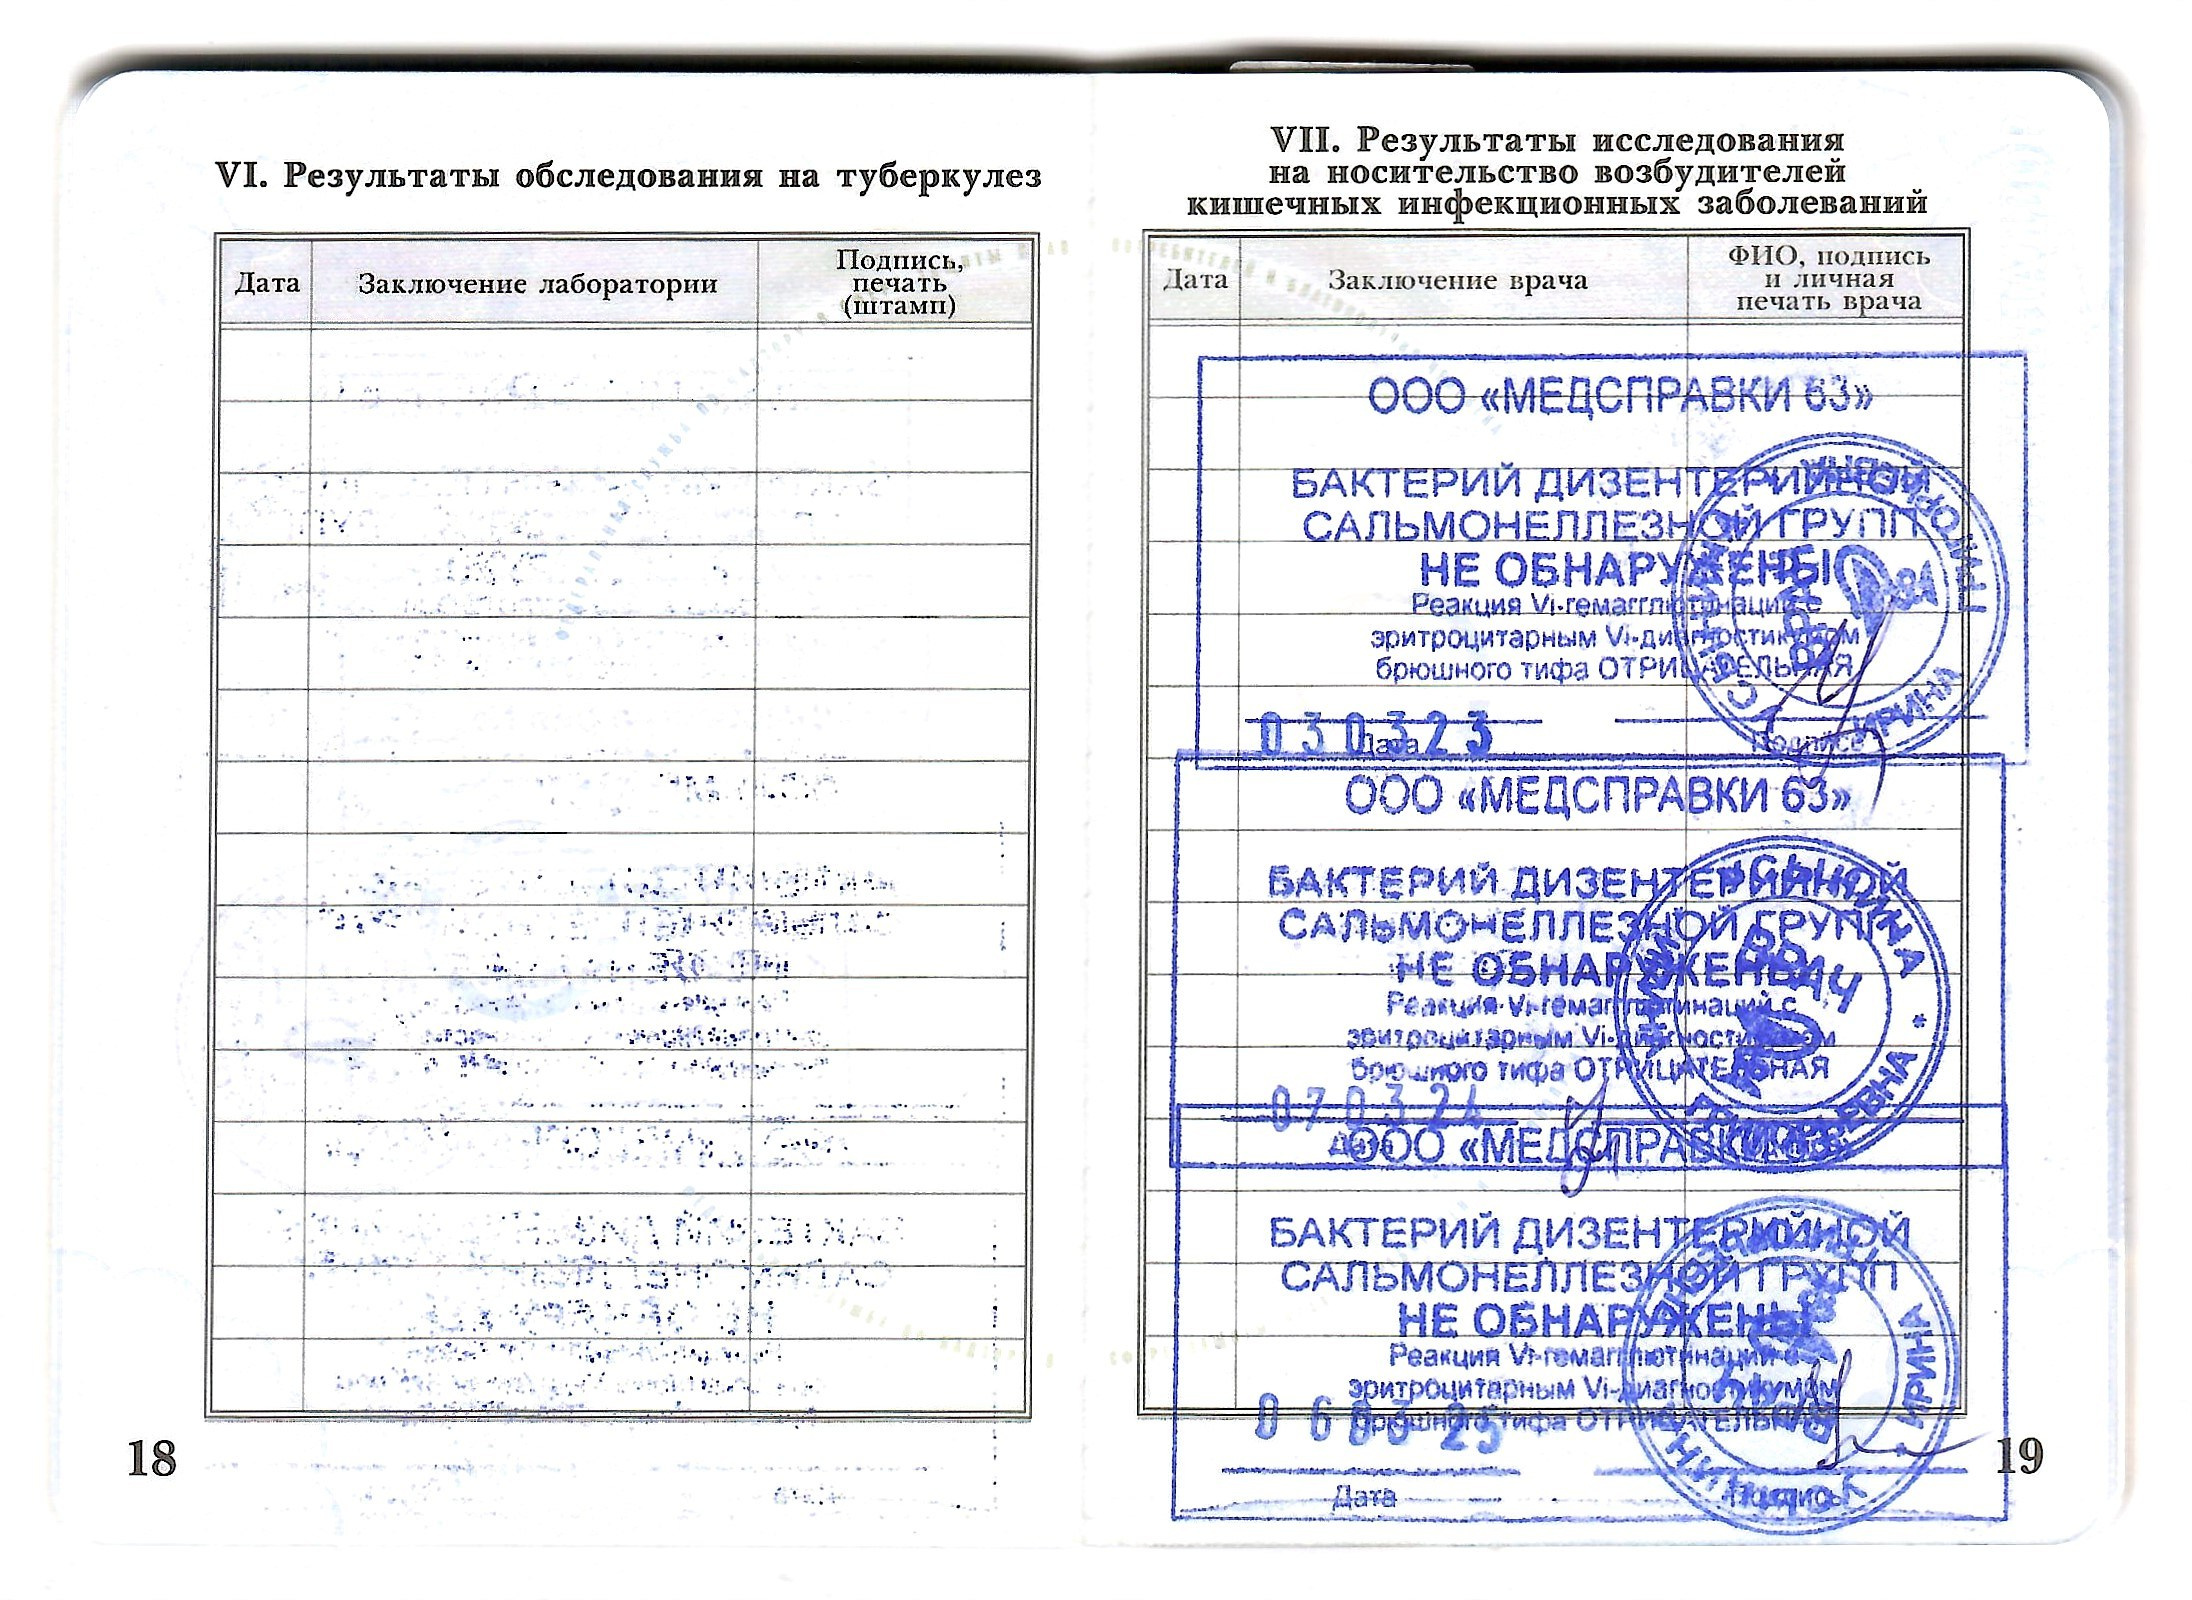 VI. Результаты обследования на туберкулез
Дата
Заключение лаборатории
Подпись,
печать
(штамп)
18
VII. Результаты исследования
на носительство возбудителей
кишечных инфекционных заболеваний
Дата
Заключение врача
ФИО, подпись
и личная
печать врача
ООО «МЕДСПРАВКИ 63»
БАКТЕРИЙ ДИЗЕНТЕРИЙНОЙ
САЛЬМОНЕЛЛЕЗНОЙ ГРУПП
НЕ ОБНАРУЖЕНЫ
Реакция Vi-гемагглютинаций с
эритроцитарным Vi-диагностикумом
брюшного тифа ОТРИЦАТЕЛЬНАЯ
030323
Дата
Подпись
ВРАЧ
ГРИГОРЬЕВНА
ИРИНА
ООО «МЕДСПРАВКИ 63»
БАКТЕРИЙ ДИЗЕНТЕРИЙНОЙ
САЛЬМОНЕЛЛЕЗНОЙ ГРУПП
НЕ ОБНАРУЖЕНЫ
Реакция Vi-гемагглютинаций с
эритроцитарным Vi-диагностикумом
брюшного тифа ОТРИЦАТЕЛЬНАЯ
070324
Дата
ВРАЧ
ГРИГОРЬЕВНА
ООО «МЕДСПРАВКИ 63»
БАКТЕРИЙ ДИЗЕНТЕРИЙНОЙ
САЛЬМОНЕЛЛЕЗНОЙ ГРУПП
НЕ ОБНАРУЖЕНЫ
Реакция Vi-гемагглютинаций с
эритроцитарным Vi-диагностикумом
брюшного тифа ОТРИЦАТЕЛЬНАЯ
060325
Дата
Подпись
ИРИНА
19